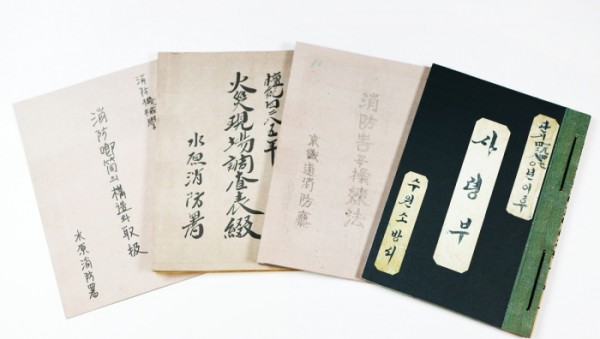 消防機械學
消防喞筒의 構造와 取扱
水原消防署
檀紀四二八
火災現場調査表綴
水原消防署
消防 操練法
京畿道消防廳
년이후
사령부
수원소방서